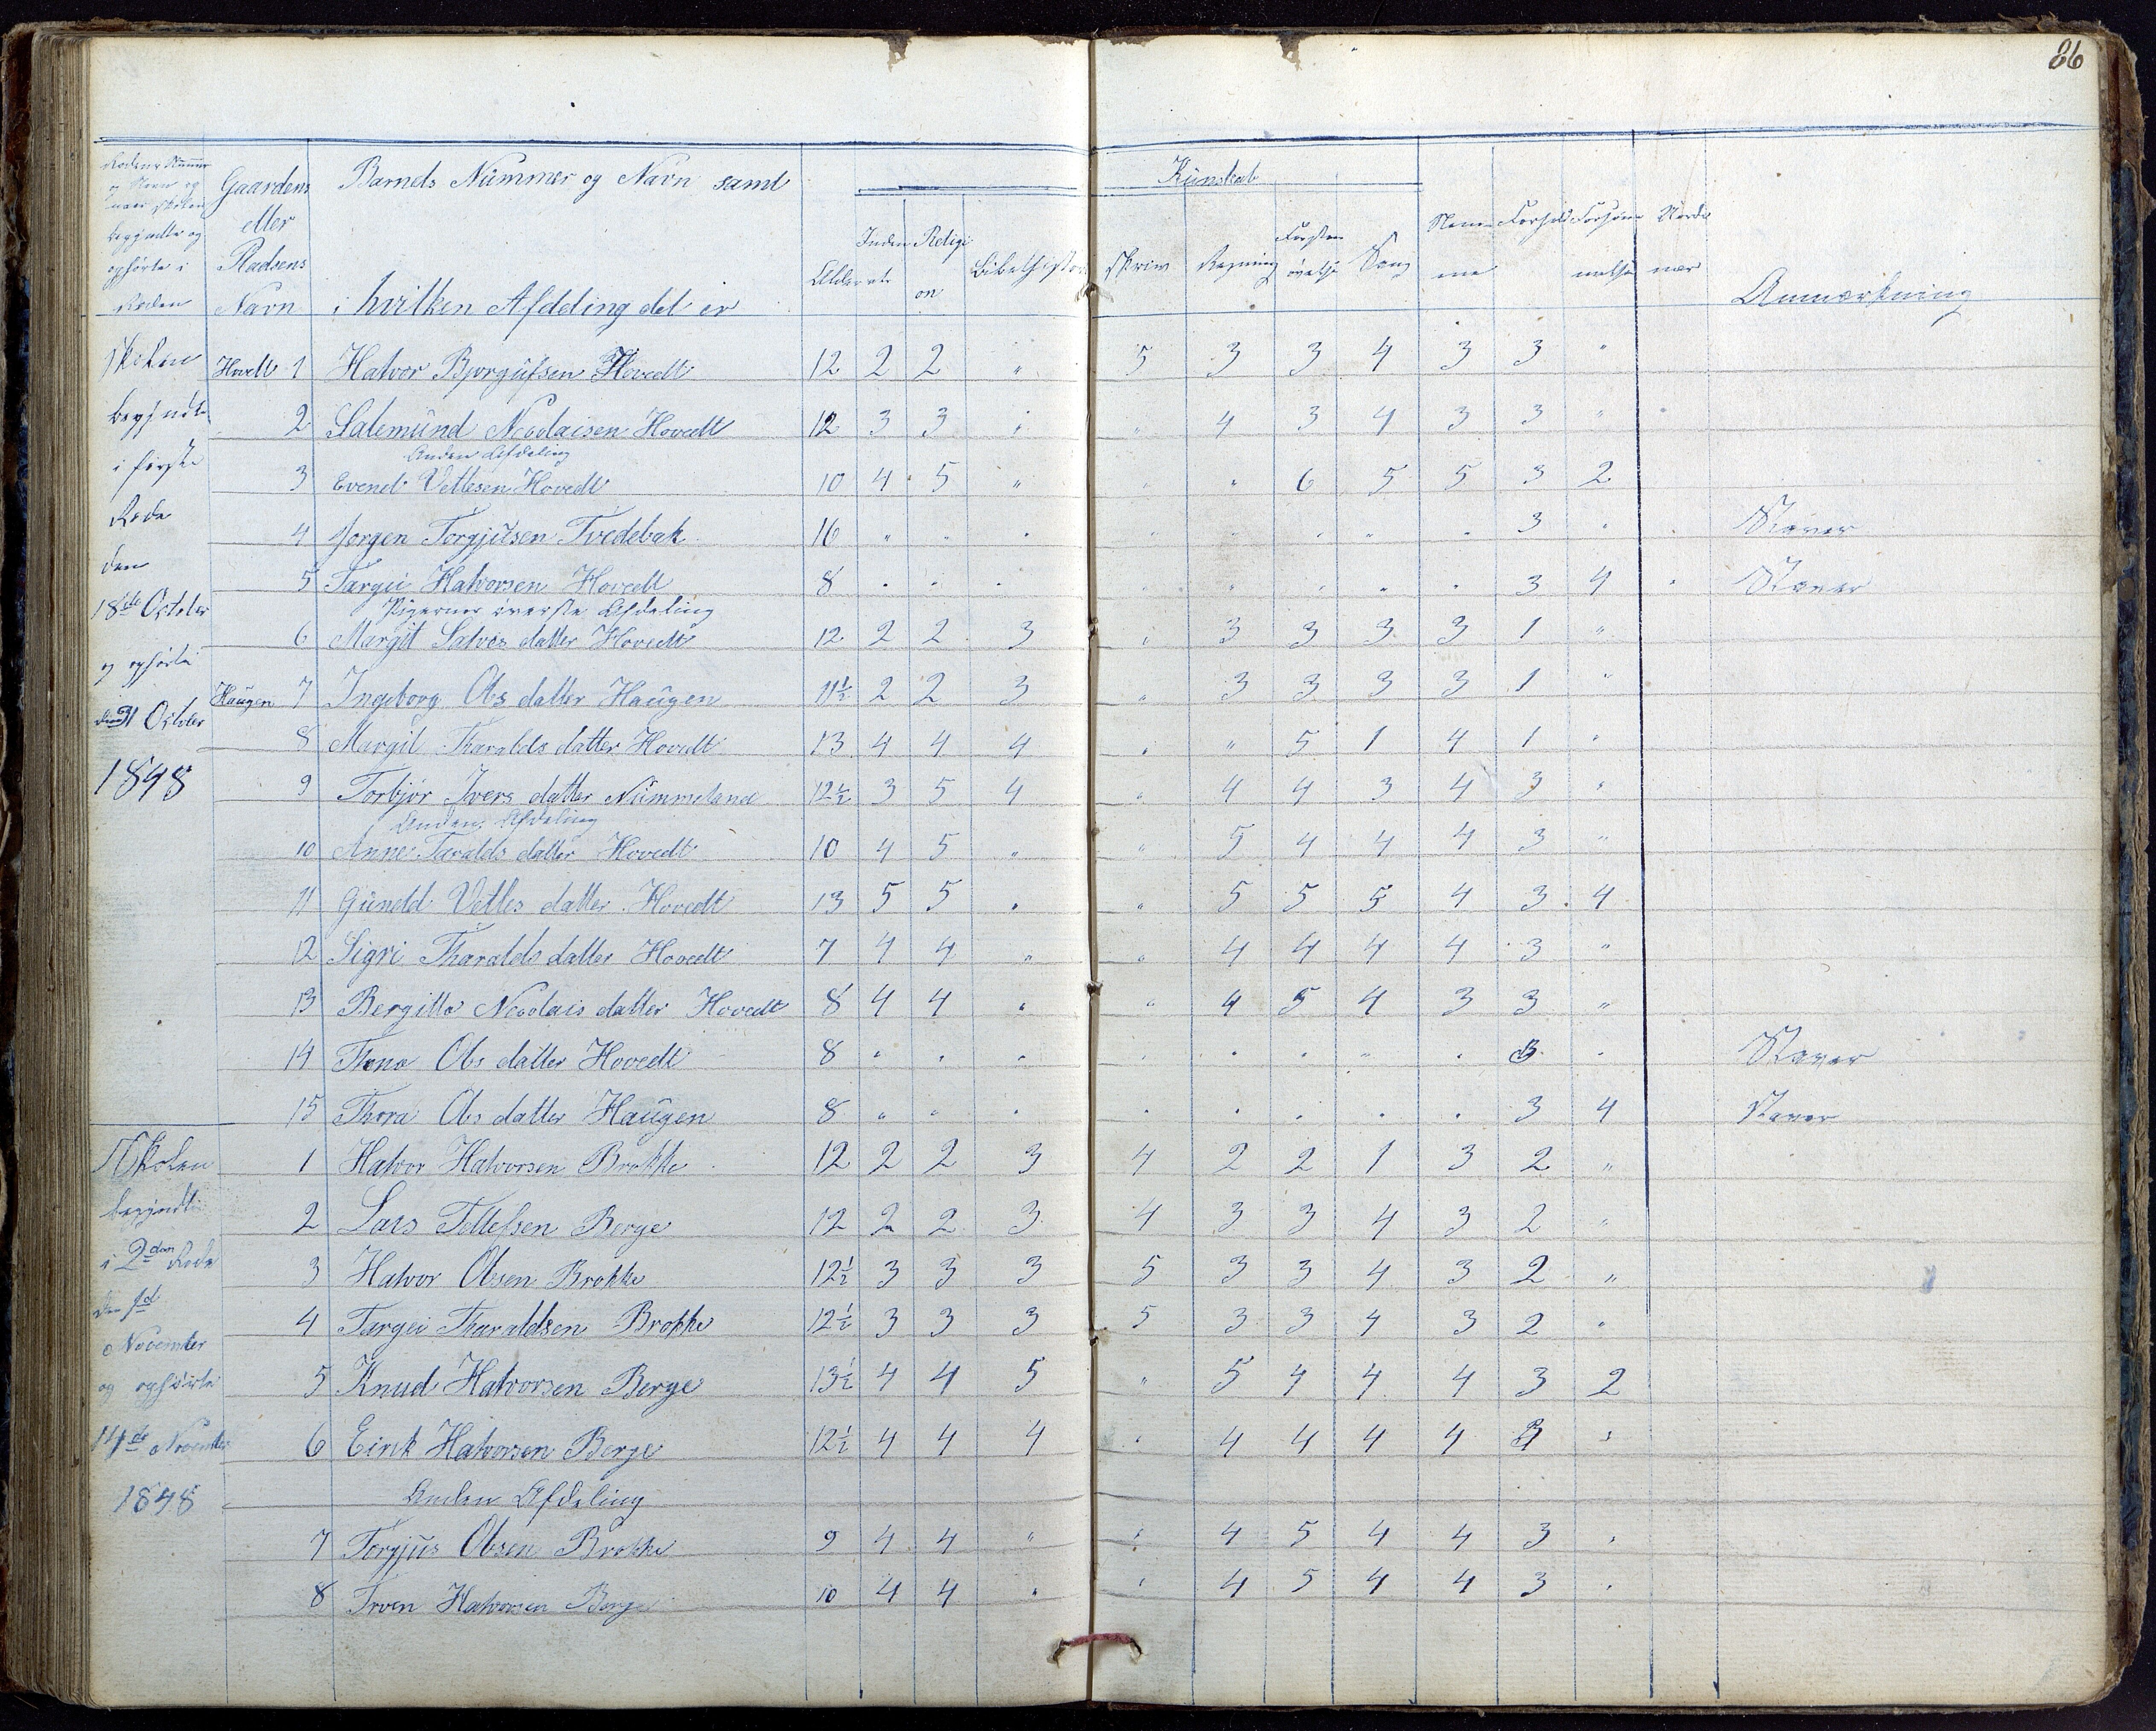 86
Rodens Nummer og Navn og naar skolen begyndte og ophørte i Roden
Gaardens eller Pladsens Navn
Barnets Nummer og Navn samt i hvilken Afdeling det er
Alder
Inden ad
Religion
Bibelhistorie
Kunskab
Skriv
Regning
Forstands øvelse
Sang
Nemme
Forhold
Forsømmelse
Anmærkning
Skolen begyndte i første Rode den 18de October og ophørte den 31 October 1848
Hovedt 1 Halvor Bjorgufsen Hovedt 12 2 2 " 5 3 3 4 3 3 "
2 Salemund Nicolaisen Hovedt 12 3 3 " " 4 3 4 3 3 "
Anden Afdeling
3 Evend Vetlesen Hovedt 10 4 5 " " " 6 5 5 3 2
4 Jorgen Torgjusen Tvedebak 16 " " " " " " " " 3 " Staver
5 Targei Halvorsen Hovedt 8 " " " " " " " " 3 4 Staver
Pigernes øverste Afdeling
6 Margit Salves datter Hovedt 12 2 2 3 " 3 3 3 3 1 "
Haugen 7 Ingeborg Ols datter Haugen 11½ 2 2 3 " 3 3 3 3 1 "
8 Margit Tharalds datter Hovedt 13 4 4 4 " " 5 1 4 1 "
9 Torbjør Ivers datter Nummeland 12½ 3 5 4 " 4 4 3 4 3 "
Anden Afdeling
10 Anne Taralds datter Hovedt 10 4 5 " " 5 4 4 4 3 "
11 Guneld Vetles datter Hovedt 13 5 5 " " 5 5 5 4 3 4
12 Sigri Tharalds datter Hovedt 7 4 4 " " 4 4 4 4 3 "
13 Bergitte Nicolais datter Hovedt 8 4 4 " " 4 5 4 3 3 "
14 Thona Ols datter Hovedt 8 " " " " " " " " 3 " Staver
15 Thora Ols datter Haugen 8 " " " " " " " " 3 4 Staver
Skolen begyndte i 2den Rode den 1d November og ophørte 14de November 1848
1 Halvor Halvorsen Brokke 12 2 2 3 4 2 2 1 3 2 "
2 Lars Tellefsen Berge 12 2 2 3 4 3 3 4 3 2 "
3 Halvor Olsen Brokke 12½ 3 3 3 5 3 3 4 3 2 "
4 Targei Tharaldsen Brokke 12½ 3 3 3 5 3 3 4 3 2 "
5 Knud Halvorsen Berge 13½ 4 4 5 " 5 4 4 4 3 2
6 Eirik Halvorsen Berge 12½ 4 4 4 " 4 4 4 4 3 "
Anden Afdeling
7 Torgjus Olsen Brokke 9 4 4 " " 4 5 4 4 3 "
8 Halvorsen Berge 10 4 4 " " 4 5 4 4 3 "